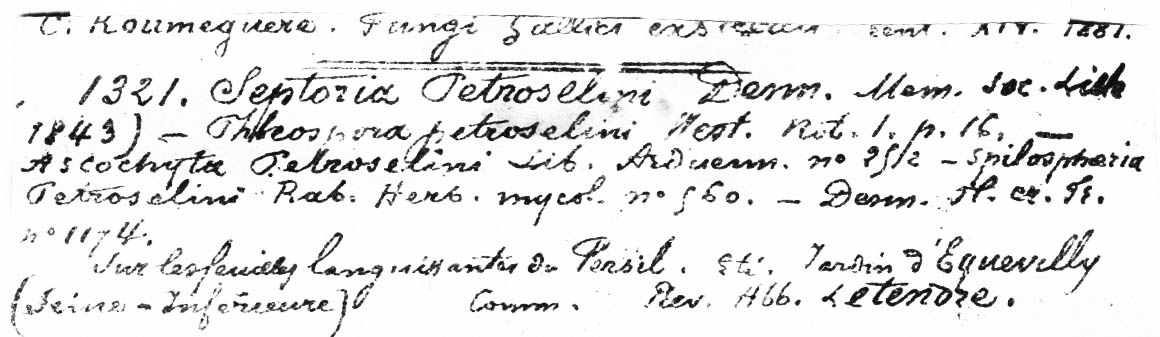 C. Roumeguere. Fungi Gallici exsiccati. Cent. XIV. 1881.
1321. Septoria Petroselini Desm. Mem. Soc. Lille
1843) — Phleospora petroselini West. Not. 1. p. 16. —
Ascochyta Petroselini Lib. Arduenn. no 252 — Spilosphæria
Petroselini Rab. Herb. mycol. no 560. — Desm. Pl. cr. Fr.
no 1174.
Sur les feuilles languissantes du Persil. Eté. Jardin d'Equevilly
(Seine-Inférieure) Comm. Rev. Abb. Letendre.